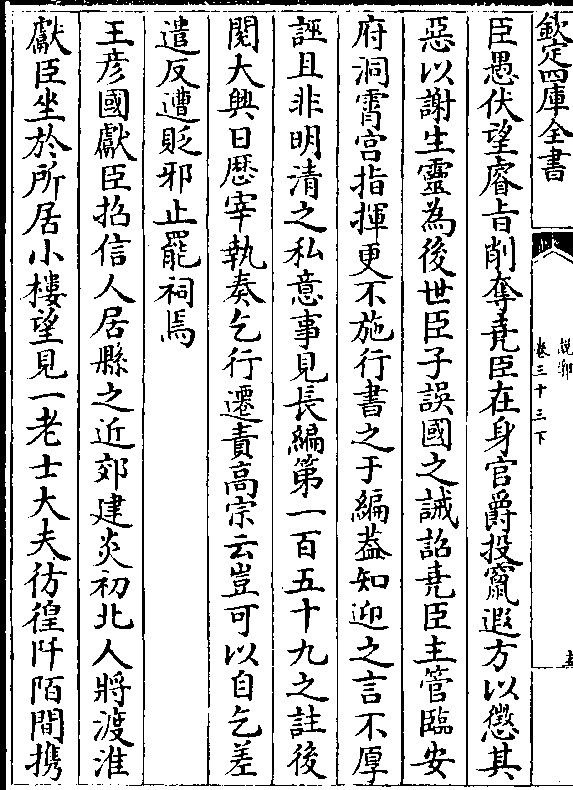 欽定四庫全書
說郛
卷三十三下
臣愚伏望睿旨削奪堯臣在身官爵投竄遐方以懲其
惡以謝生靈為後世臣子誤國之誡詔堯臣主管臨安
府洞霄宫指揮更不施行書之于編葢知迎之言不厚
誣且非明清之私意事見長編第一百五十九之註後
閱大興日厯宰執奏乞行遷責高宗云豈可以自乞差
遣反遭貶邪止罷祠焉
王彦國獻臣招信人居縣之近郊建炎初北人將渡淮
獻臣坐於所居小樓望見一老士大夫彷徨阡陌間携